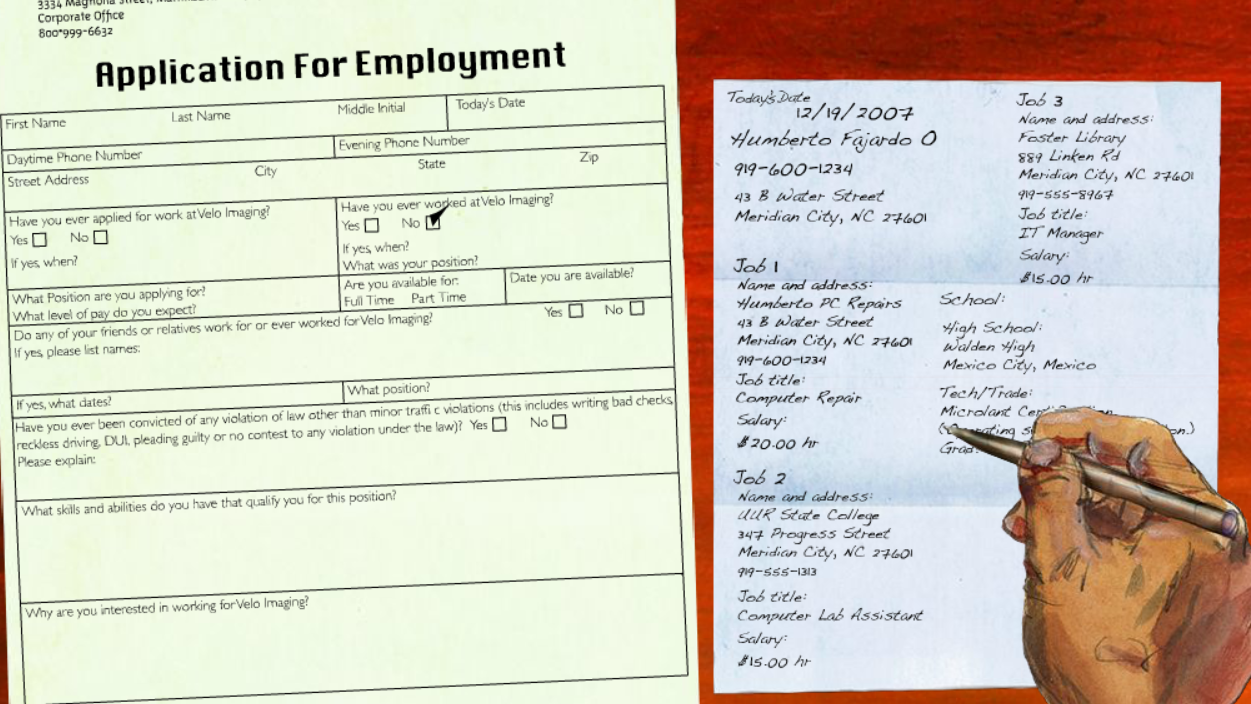 Corporate Office
800*999-6632
Application For Employment
First Name Last Name Middle Initial Today's Date
Daytime Phone Number Evening Phone Number
Street Address City State Zip
Have you ever applied for work at Velo Imaging?
Yes No
If yes, when?
Have you ever worked at Velo Imaging?
Yes No
If yes, when?
What was your position?
What Position are you applying for?
What level of pay do you expect?
Are you available for:
Full Time Part Time
Date you are available?
Do any of your friends or relatives work for or ever worked for Velo Imaging? Yes No
If yes, please list names:
If yes, what dates? What position?
Have you ever been convicted of any violation of law other than minor traffi c violations (this includes writing bad checks,
reckless driving, DUI, pleading guilty or no contest to any violation under the law)? Yes No
Please explain:
What skills and abilities do you have that qualify you for this position?
Why are you interested in working for Velo Imaging?
Today's Date
12/19/2007
Humberto Fajardo O
919-600-1234
43 B Water Street
Meridian City, NC 27601
Job 1
Name and address:
Humberto PC Repairs
43 B Water Street
Meridian City, NC 27601
919-600-1234
Job title:
Computer Repair
Salary:
$20.00 hr
Job 2
Name and address:
UUR State College
347 Progress Street
Meridian City, NC 27601
919-555-1313
Job title:
Computer Lab Assistant
Salary:
$15.00 hr
Job 3
Name and address:
Foster Library
889 Linken Rd
Meridian City, NC 27601
919-555-8967
Job title:
IT Manager
Salary:
$15.00 hr
School:
High School:
Walden High
Mexico City, Mexico
Tech/Trade:
Microlant